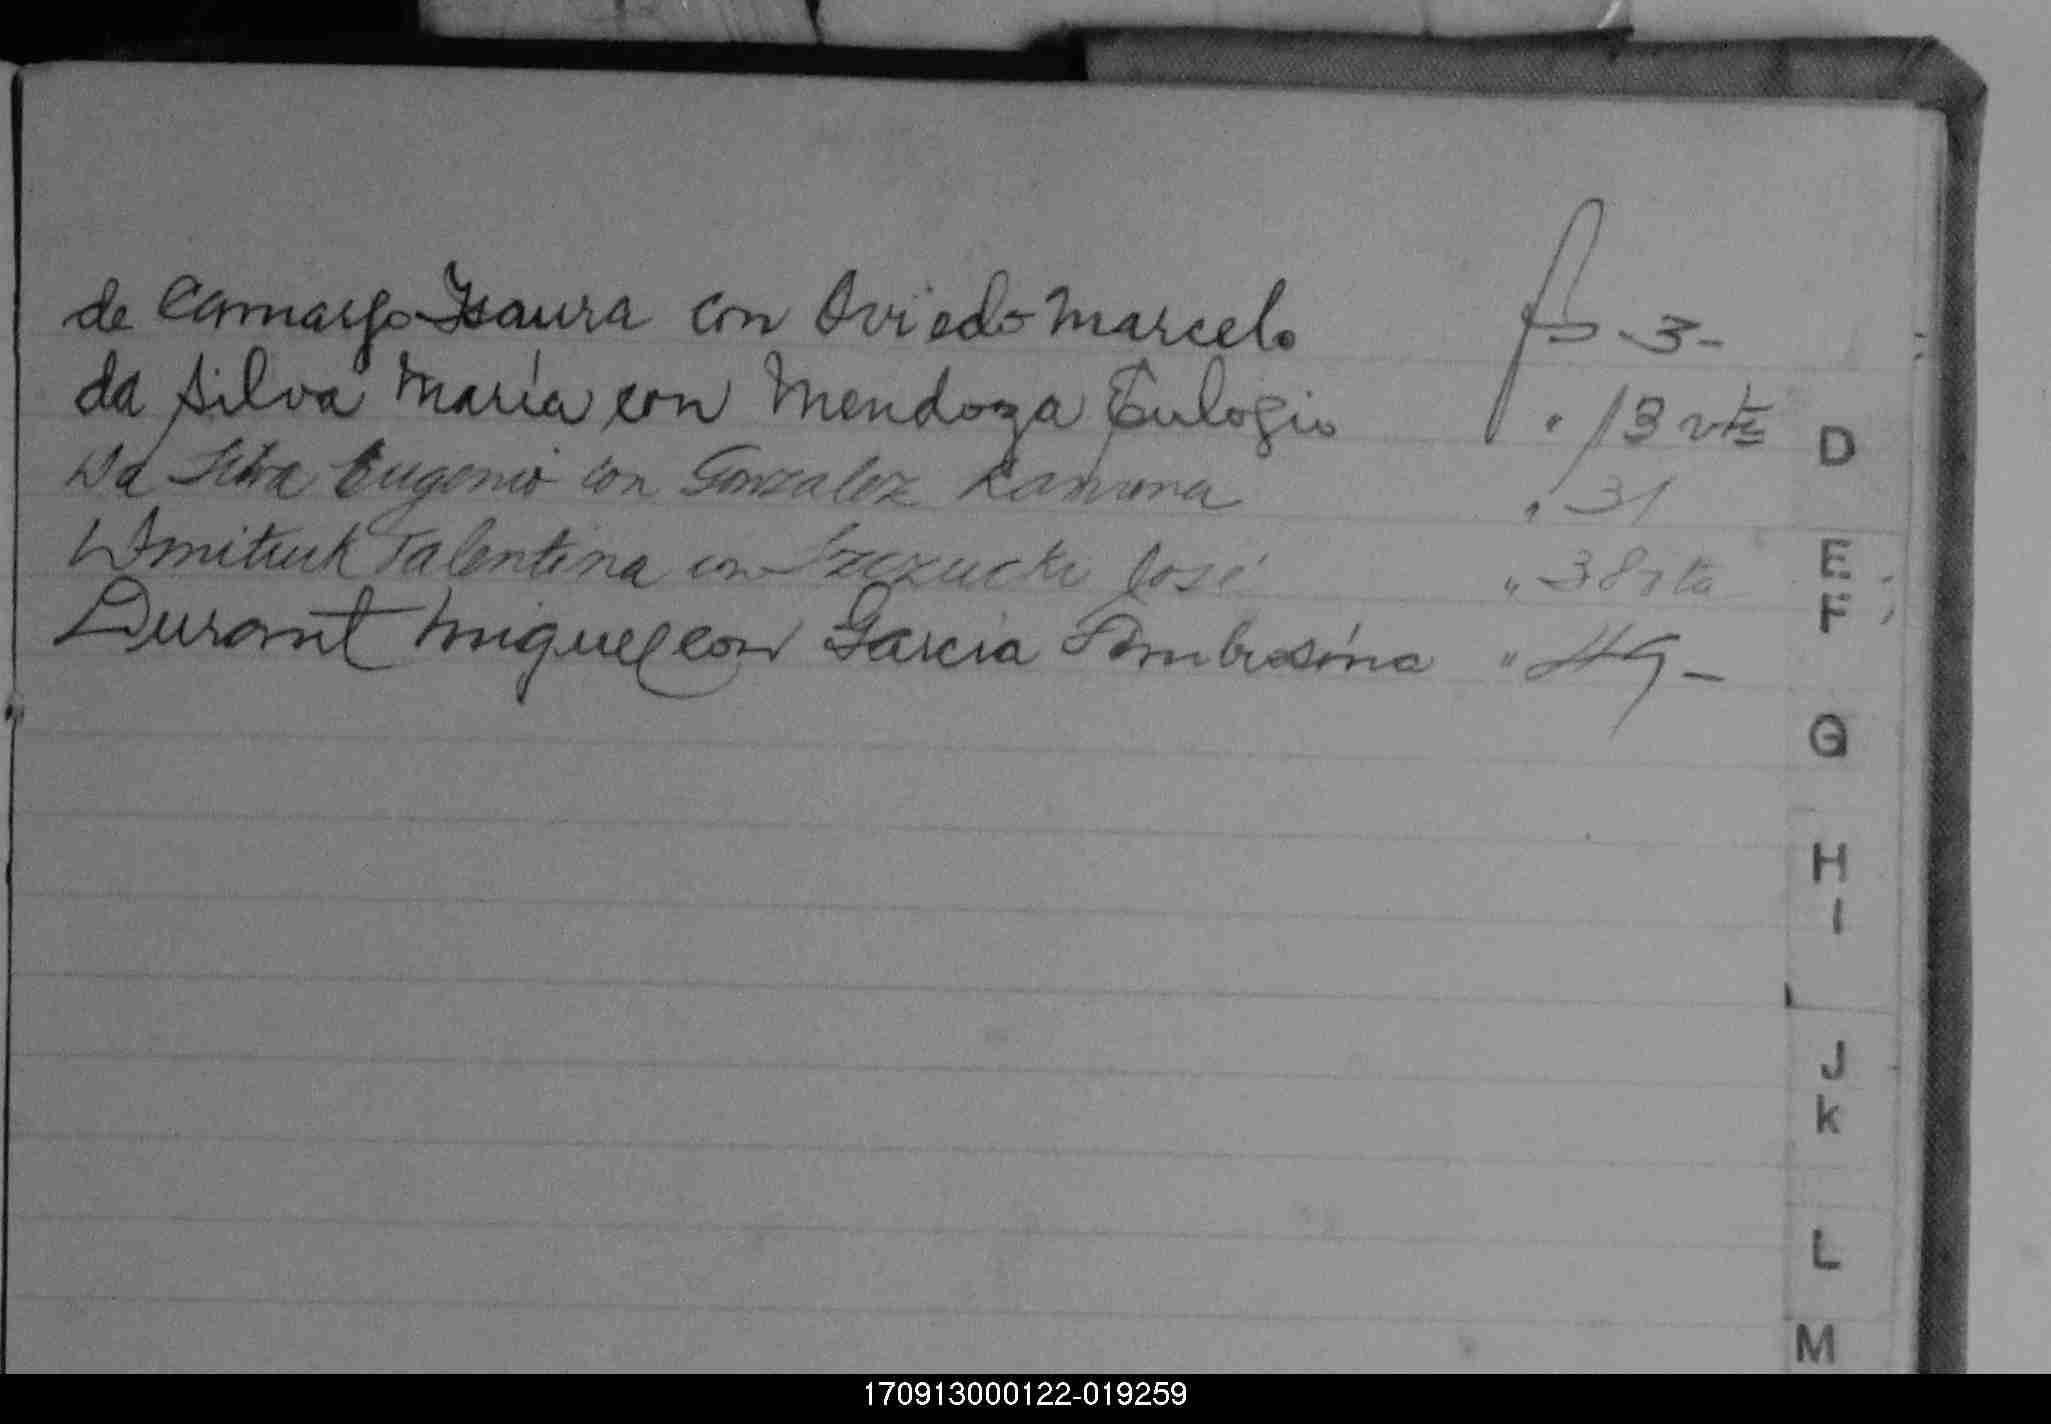 de Camargo Isaura con Oviedo Marcelo fo 3-
da Silva María con Mendoza Eulogio " 13 vta
Da Silva Eugenio con Gonzalez Ramona " 31
Dmitruk Valentina con José " 38 vta
Durant Miguel con Garcia Ambrosina " 49-
D
E
F
G
H
I
J
K
L
M
170913000122-019259